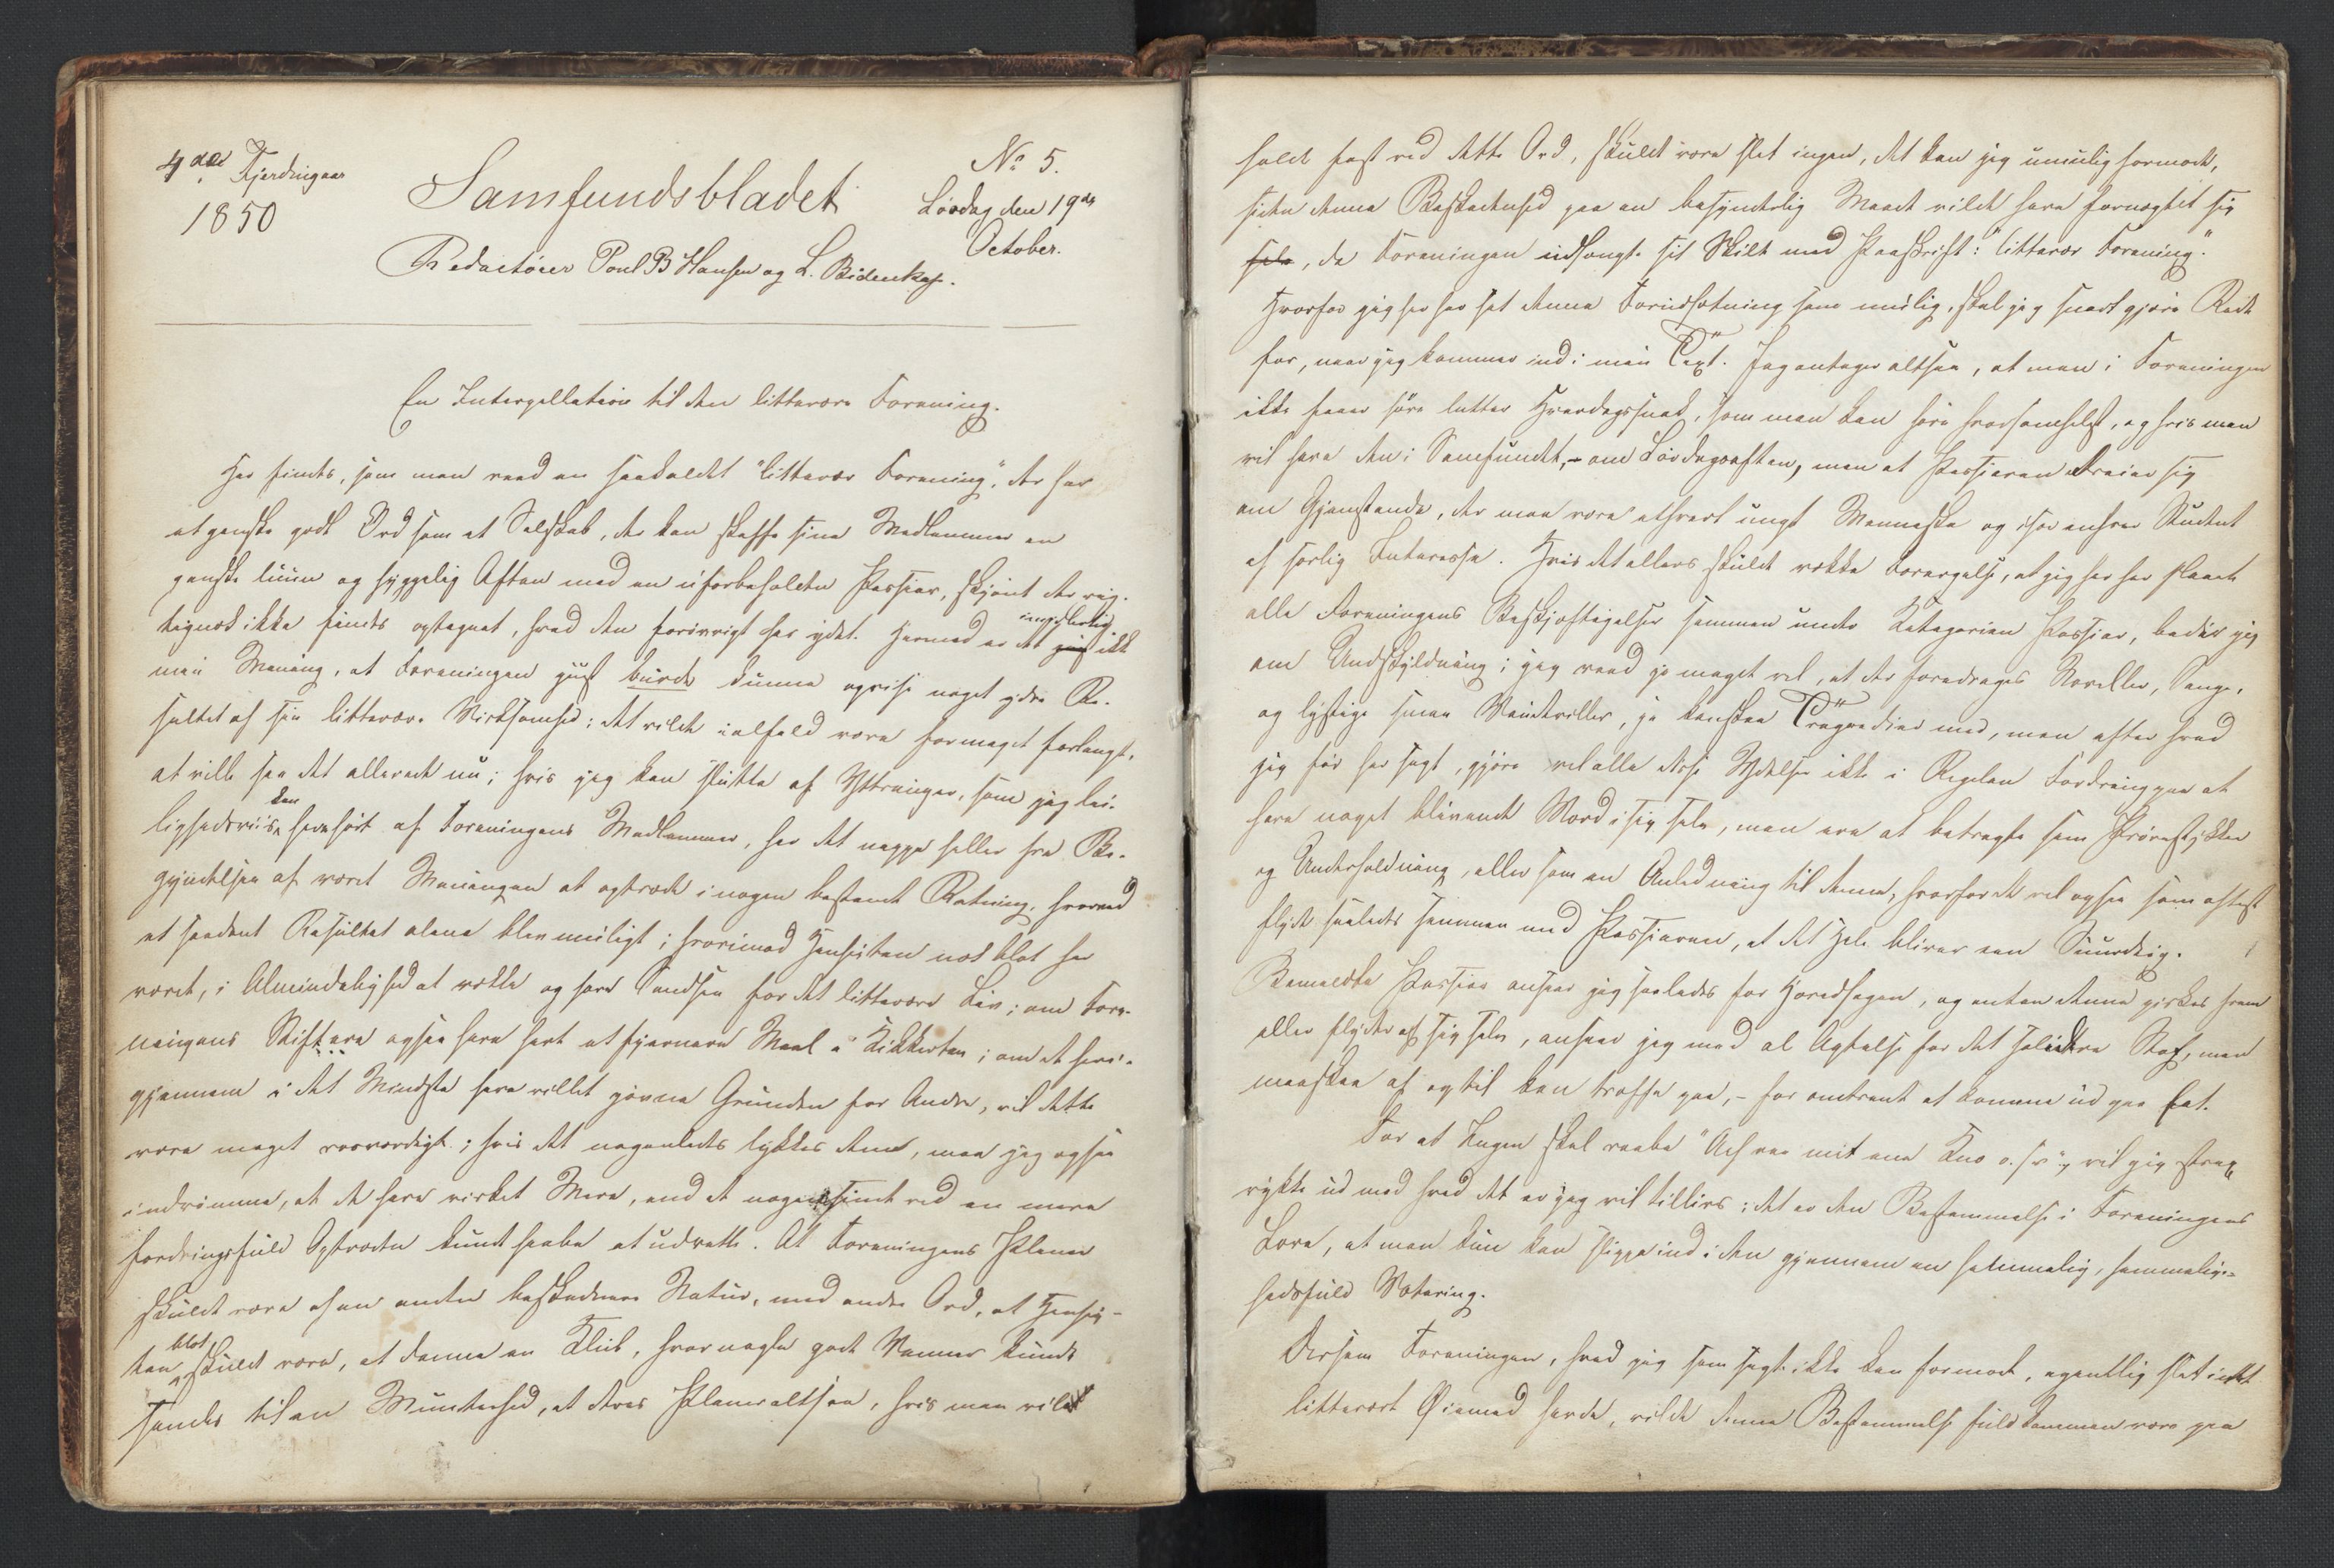 4de Fjerdingaar
1850
Samfundsbladet
No 5.
Løvdag den 19de
October.
Redactører Poul B Hansen og L. Bidenkap.
En Interpellation til den litterære Forening.
Her findes, som man veed en saakaldet "litterær Forening", der har
et ganske godt Ord som et Selskab, der kan skaffe sine Medlemmer en
ganske lun og hyggelig Aften med en uforbeholden Passiar, skjønt der rig-
tignok ikke findes optegnet, hvad den forøvrigt har ydet. Hermed er det imidlertid ikke
min Mening, at Foreningen just burde kunne opvise noget ydre Re-
sultat af sin litterære Virksomhed; det vilde ialfald være formeget forlangt,
at ville see det allerede nu; hvis jeg kan slutte af Yttringer, som jeg lei-
lighedsviis har hørt af Foreningens Medlemmer, har det neppe heller fra Be-
gyndelsen af været Meningen at optræde i nogen bestemt Retning, hvorved
et saadant Resultat alene blev muligt; hvorimod Hensigten nok blot har
været, i Almindelighed at vække og høre Sandsen for det litterære Liv; om Fore-
ningens Stiftere ogsaa have havt et fjernere Maal i Kikkerten; om de heri-
gjennem i det Mindste have villet jævne Grunden for Andre, vil dette
være meget rosværdigt; hvis det nogenledes lykkes dem, maa jeg ogsaa
indrømme, at de have virket Mere, end de nogensinde ved en mere
fordringsfuld Optræden kunde haabe at udrette. At Foreningens Planer
skulde være af en anden beskednere Natur, med andre Ord, at Hensig-
ten blot skulde være, at danne en Klub, hvor nogle gode Venner kunde
samles til en Munterhed, at deres Planer altsaa, hvis man vilde
holde fast ved dette Ord, skulde være slet ingen, det kan jeg umulig formode,
siden denne Beskedenhed paa en besynderlig Maade vilde have fornægtet sig
selv, da Foreningen udhængte sit Skilt med Paaskrift: "litterær Forening".
Hvorfor jeg her har sat denne Forudsætning som mulig, skal jeg snart gjøre Rede
for, naar jeg kommer ind i min Text. Jeg antager altsaa, at man i Foreningen
ikke faaer høre lutter Hverdagssnak, som man kan høre hvorsomhelst, og hvis man
vil have den i Samfundet, – om Løvdagsaften, men at Passiaren dreier sig
om Gjenstande, der maa være ethvert ungt Menneske og især enhver Student
af særlig Interesse. Hvis det ellers skulde vække Forargelse, at jeg her har slaaet
alle Foreningens Beskjæftigelser sammen under Kategorien Passiar, beder jeg
om Undskyldning; jeg veed jo meget vel, at der foredrages Noveller, Sange,
og lystige smaa Vaudeviller, ja kanskee Tragoedier med, men efter hvad
jeg før har sagt, gjøre vel alle disse Ydelser ikke i Regelen Fordring paa at
have noget blivende Værd i sig selv, men ere at betragte som Prøvestykker
og Underholdning, eller som en Anledning til denne, hvorfor de vel ogsaa som oftest
flyde saaledes sammen med Passiaren, at det Hele bliver een Suurdeig.
Bemeldte Passiar anseer jeg saaledes for Hovedsagen, og enten denne piskes frem
eller flyder af sig selv, anseer jeg med al Agtelse for det solidere Stof, man
maaskee af og til kan træffe paa, – for omtrent at komme ud paa Eet.
For at Ingen skal raabe "Ach was mit ane Kno o. s. v", vil jeg strax
rykke ud med hvad det er jeg vil tillivs; det er den Bestemmelse i Foreningens
Love, at man kun kan slippe ind i den gjennem en hemmelig, hemmelig-
hedsfuld Votering.
Dersom Foreningen, hvad jeg som sagt ikke kan formode, egentlig slet intet
litterært Øiemed havde, vilde denne Bestemmelse fuldkommen være paa